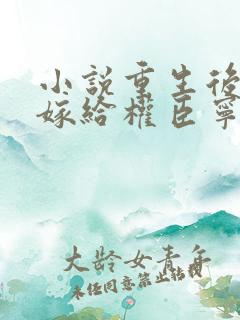 小說重生後
嫁給權臣寧
大齡女青年
未經同意禁止轉載